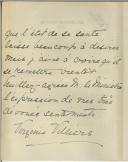 que l'état de sa santé
laisse beaucoup à désirer
mais j'aime à croire qu'il
se remettra bientôt
Veuillez agréer M. le Ministre
l'expression de mes très
dévoués sentiments